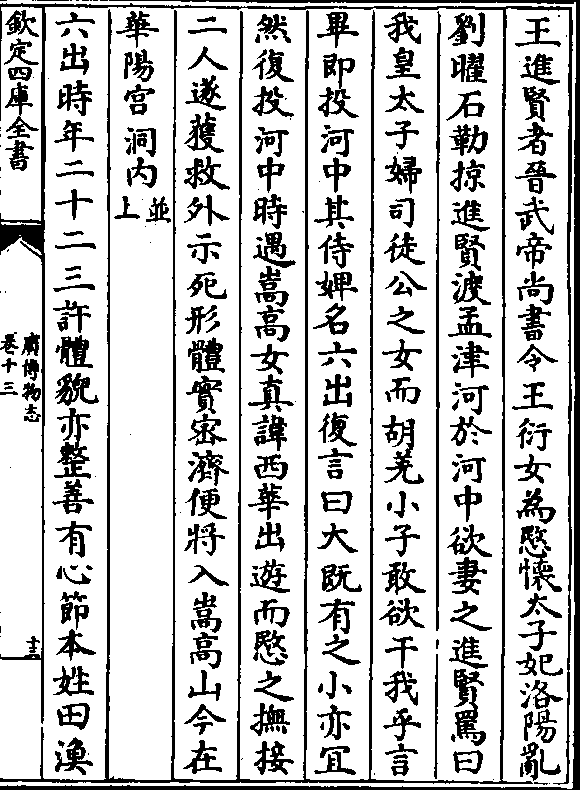 王進賢者晉武帝尚書令王衍女為愍懷太子妃洛陽亂
劉曜石勒掠進賢渡孟津河於河中欲妻之進賢罵曰
我皇太子婦司徒公之女而胡羌小子敢欲干我乎言
畢即投河中其侍婢名六出復言曰大既有之小亦宜
然復投河中時遇嵩高女真諱西華出遊而愍之撫接
二人遂獲救外示死形體實密濟便將入嵩高山今在
華陽宮洞內並上
六出時年二十二三許體貌亦整善有心節本姓田漁
欽定四庫全書
廣博物志
卷十三
十三